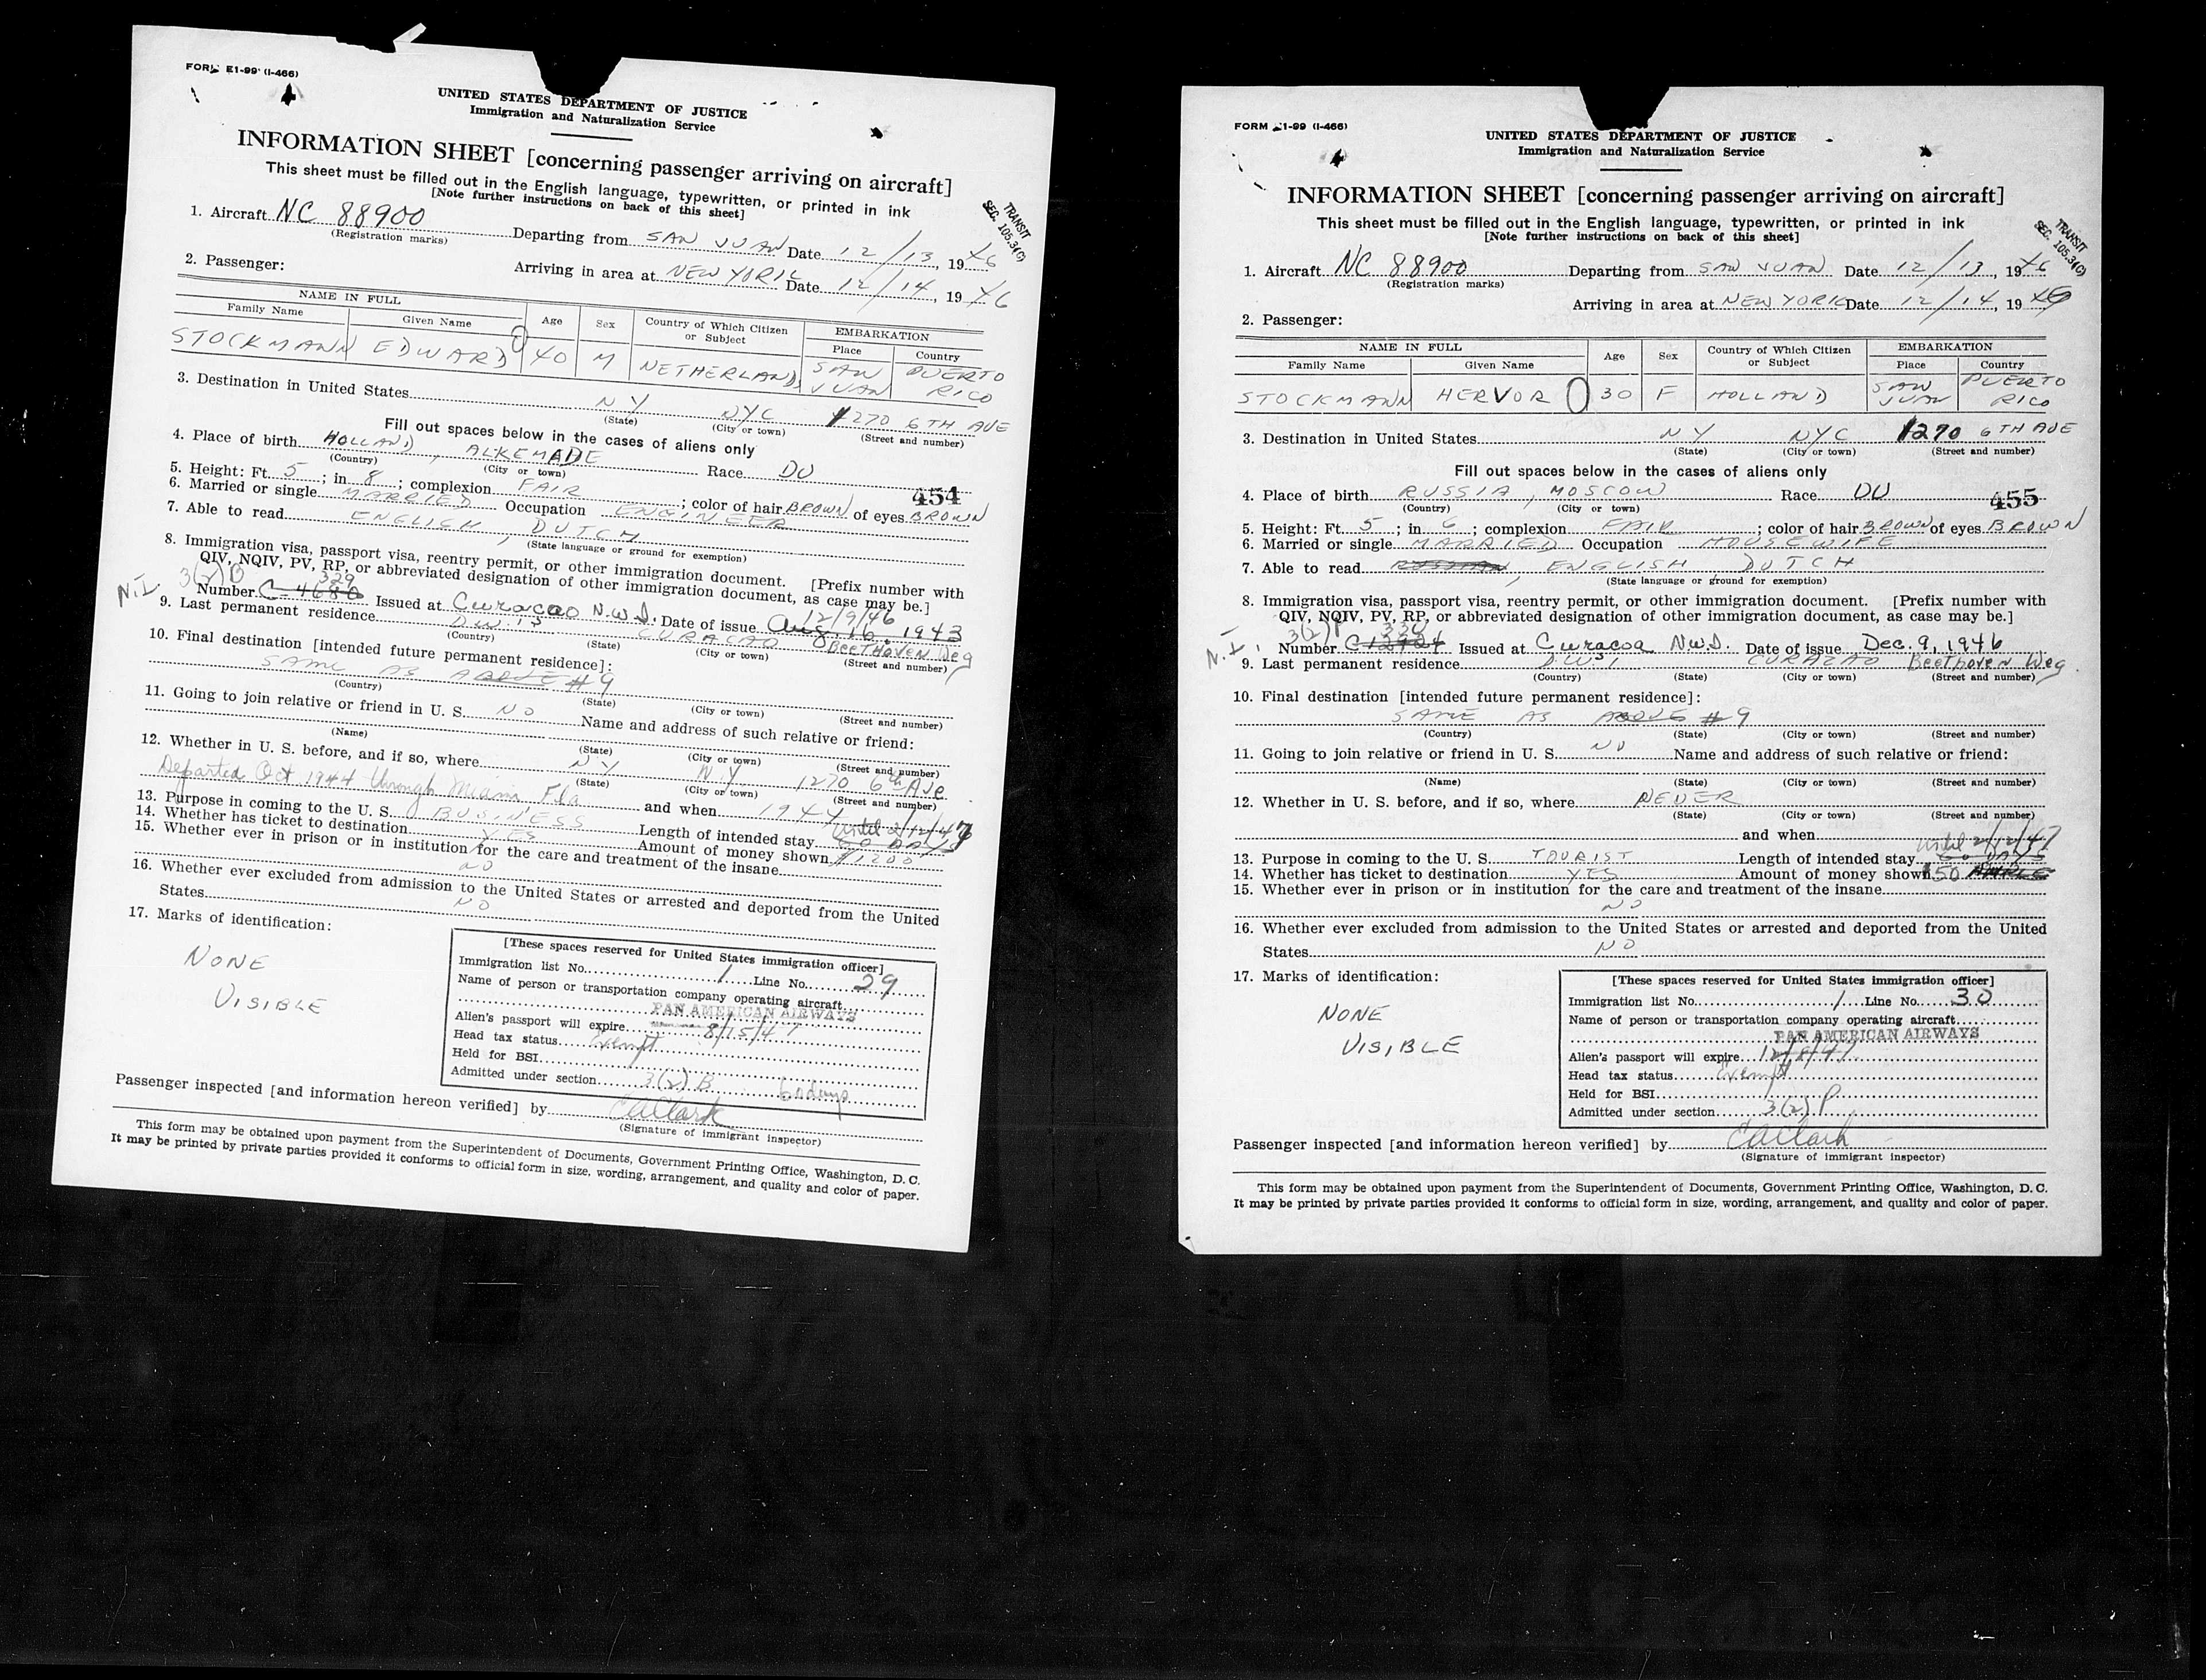 FORM E1-99 (I-466)
UNITED STATES DEPARTMENT OF JUSTICE
Immigration and Naturalization Service
INFORMATION SHEET [concerning passenger arriving on aircraft]
This sheet must be filled out in the English language, typewritten, or printed in ink
[Note further instructions on back of this sheet]
TRANSIT
SEC. 105.3(C)
1. Aircraft NC 88900 Departing from SAN JUAN Date 12/13, 1946
(Registration marks)
Arriving in area at NEW YORK Date 12/14, 1946
2. Passenger:
NAME IN FULL Age Sex Country of Which Citizen or Subject EMBARKATION
Family Name Given Name Place Country
STOCKMANN EDWARD 40 M NETHERLANDS SAN JUAN PUERTO RICO
3. Destination in United States NY NYC 1270 6TH AVE
(State) (City or town) (Street and number)
Fill out spaces below in the cases of aliens only
4. Place of birth HOLLAND, ALKEMADE Race DU
(Country) (City or town)
454
5. Height: Ft. 5; in 8; complexion FAIR; color of hair BROWN of eyes BROWN
6. Married or single MARRIED Occupation ENGINEER
7. Able to read ENGLISH, DUTCH
(State language or ground for exemption)
8. Immigration visa, passport visa, reentry permit, or other immigration document. [Prefix number with
QIV, NQIV, PV, RP, or abbreviated designation of other immigration document, as case may be.]
N.I. 3(2) B 329 12/9/46
Number C-4680 Issued at Curacao N.W.I. Date of issue Aug. 16, 1943
9. Last permanent residence D.W.I. CURACAO BEETHOVEN Weg
(Country) (State) (City or town) (Street and number)
10. Final destination [intended future permanent residence]:
SAME AS ABOVE #9
(Country) (State) (City or town) (Street and number)
11. Going to join relative or friend in U. S. NO Name and address of such relative or friend:
(Name) (State) (City or town) (Street and number)
12. Whether in U. S. before, and if so, where NY N.Y 1270 6th Ave
(State) (City or town) (Street and number)
Departed Oct 1944 through Miami Fla and when 1944
13. Purpose in coming to the U. S. BUSINESS Length of intended stay until 2/12/47 60 DAYS
14. Whether has ticket to destination YES Amount of money shown $1200
15. Whether ever in prison or in institution for the care and treatment of the insane
NO
16. Whether ever excluded from admission to the United States or arrested and deported from the United
States NO
17. Marks of identification:
NONE
VISIBLE
[These spaces reserved for United States immigration officer]
Immigration list No. 1 Line No. 29
Name of person or transportation company operating aircraft
PAN AMERICAN AIRWAYS
Alien's passport will expire 8/15/47
Head tax status Exempt
Held for BSI
Admitted under section 3(2) B 60 days
Passenger inspected [and information hereon verified] by CAClark
(Signature of immigrant inspector)
This form may be obtained upon payment from the Superintendent of Documents, Government Printing Office, Washington, D. C.
It may be printed by private parties provided it conforms to official form in size, wording, arrangement, and quality and color of paper.
FORM 1-99 (I-466)
UNITED STATES DEPARTMENT OF JUSTICE
Immigration and Naturalization Service
INFORMATION SHEET [concerning passenger arriving on aircraft]
This sheet must be filled out in the English language, typewritten, or printed in ink
[Note further instructions on back of this sheet]
TRANSIT
SEC. 105.3(C)
1. Aircraft NC 88900 Departing from SAN JUAN Date 12/13, 1946
(Registration marks)
Arriving in area at NEW YORK Date 12/14, 1946
2. Passenger:
NAME IN FULL Age Sex Country of Which Citizen or Subject EMBARKATION
Family Name Given Name Place Country
STOCKMANN HERVOR 30 F HOLLAND SAN JUAN PUERTO RICO
3. Destination in United States NY NYC 1270 6TH AVE
(State) (City or town) (Street and number)
Fill out spaces below in the cases of aliens only
4. Place of birth RUSSIA, MOSCOW Race DU
(Country) (City or town)
455
5. Height: Ft. 5; in 6; complexion FAIR; color of hair BROWN of eyes BROWN
6. Married or single MARRIED Occupation HOUSEWIFE
7. Able to read RUSSIAN, ENGLISH DUTCH
(State language or ground for exemption)
8. Immigration visa, passport visa, reentry permit, or other immigration document. [Prefix number with
QIV, NQIV, PV, RP, or abbreviated designation of other immigration document, as case may be.]
N.I. 3(2) P 330
Number Issued at Curacoa N.W.I. Date of issue Dec. 9, 1946
9. Last permanent residence D.W.I. CURAZAO BEETHOVEN Weg
(Country) (State) (City or town) (Street and number)
10. Final destination [intended future permanent residence]:
SAME AS ABOVE #9
(Country) (State) (City or town) (Street and number)
11. Going to join relative or friend in U. S. NO Name and address of such relative or friend:
(Name) (State) (City or town) (Street and number)
12. Whether in U. S. before, and if so, where NEVER
(State) (City or town) (Street and number)
and when
13. Purpose in coming to the U. S. TOURIST Length of intended stay until 2/12/47 60 DAYS
14. Whether has ticket to destination YES Amount of money shown $50
15. Whether ever in prison or in institution for the care and treatment of the insane
NO
16. Whether ever excluded from admission to the United States or arrested and deported from the United
States NO
17. Marks of identification:
NONE
VISIBLE
[These spaces reserved for United States immigration officer]
Immigration list No. 1 Line No. 30
Name of person or transportation company operating aircraft
PAN AMERICAN AIRWAYS
Alien's passport will expire 12/8/47
Head tax status Exempt
Held for BSI
Admitted under section 3(2) P
Passenger inspected [and information hereon verified] by CAClark
(Signature of immigrant inspector)
This form may be obtained upon payment from the Superintendent of Documents, Government Printing Office, Washington, D. C.
It may be printed by private parties provided it conforms to official form in size, wording, arrangement, and quality and color of paper.